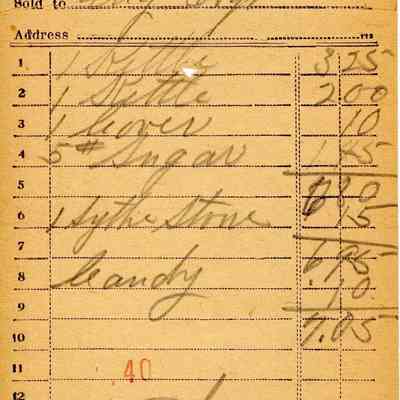 Sold to
Address
1 1 Kettle 3 25
2 1 Kettle 2 00
3 1 Cover 10
4 5# Sugar 1 45
5 6 80
6 1 Sythe Stone 15
7 6 95
8 Candy .10
9 7.05
10
11 40
12